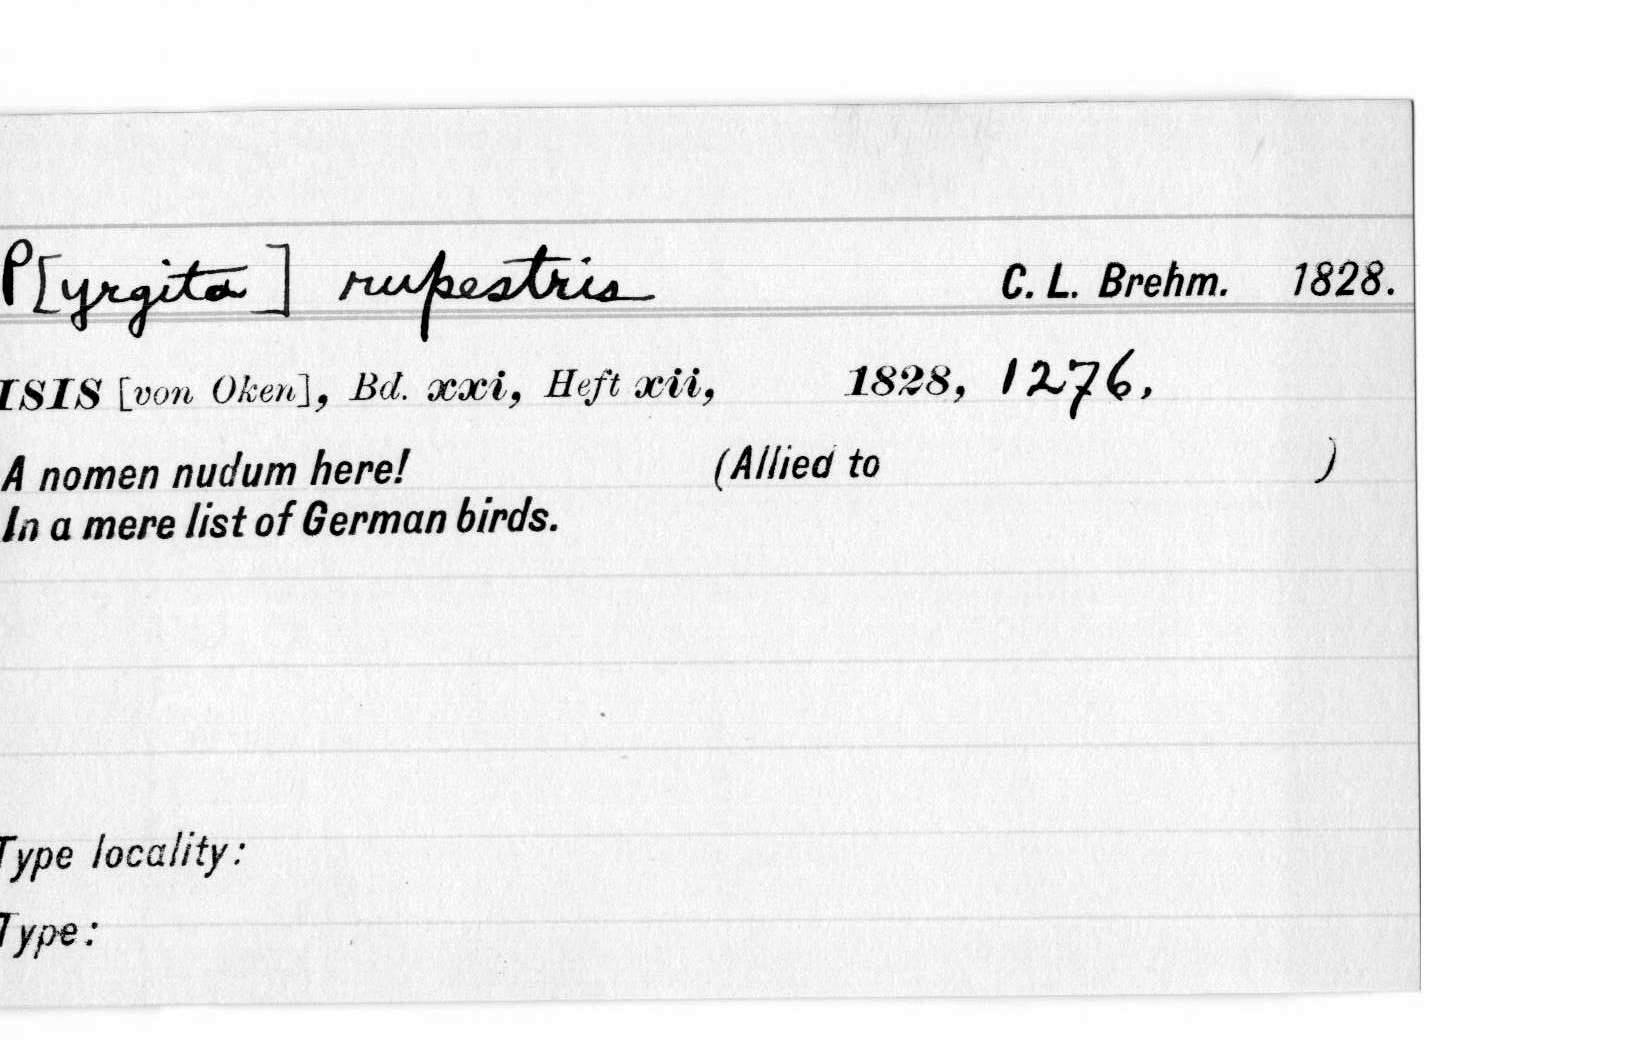 P[yrgita] rupestris C. L. Brehm. 1828.
ISIS [von Oken], Bd. xxi, Heft xii, 1828, 1276,
A nomen nudum here! (Allied to )
In a mere list of German birds.
Type locality:
Type: